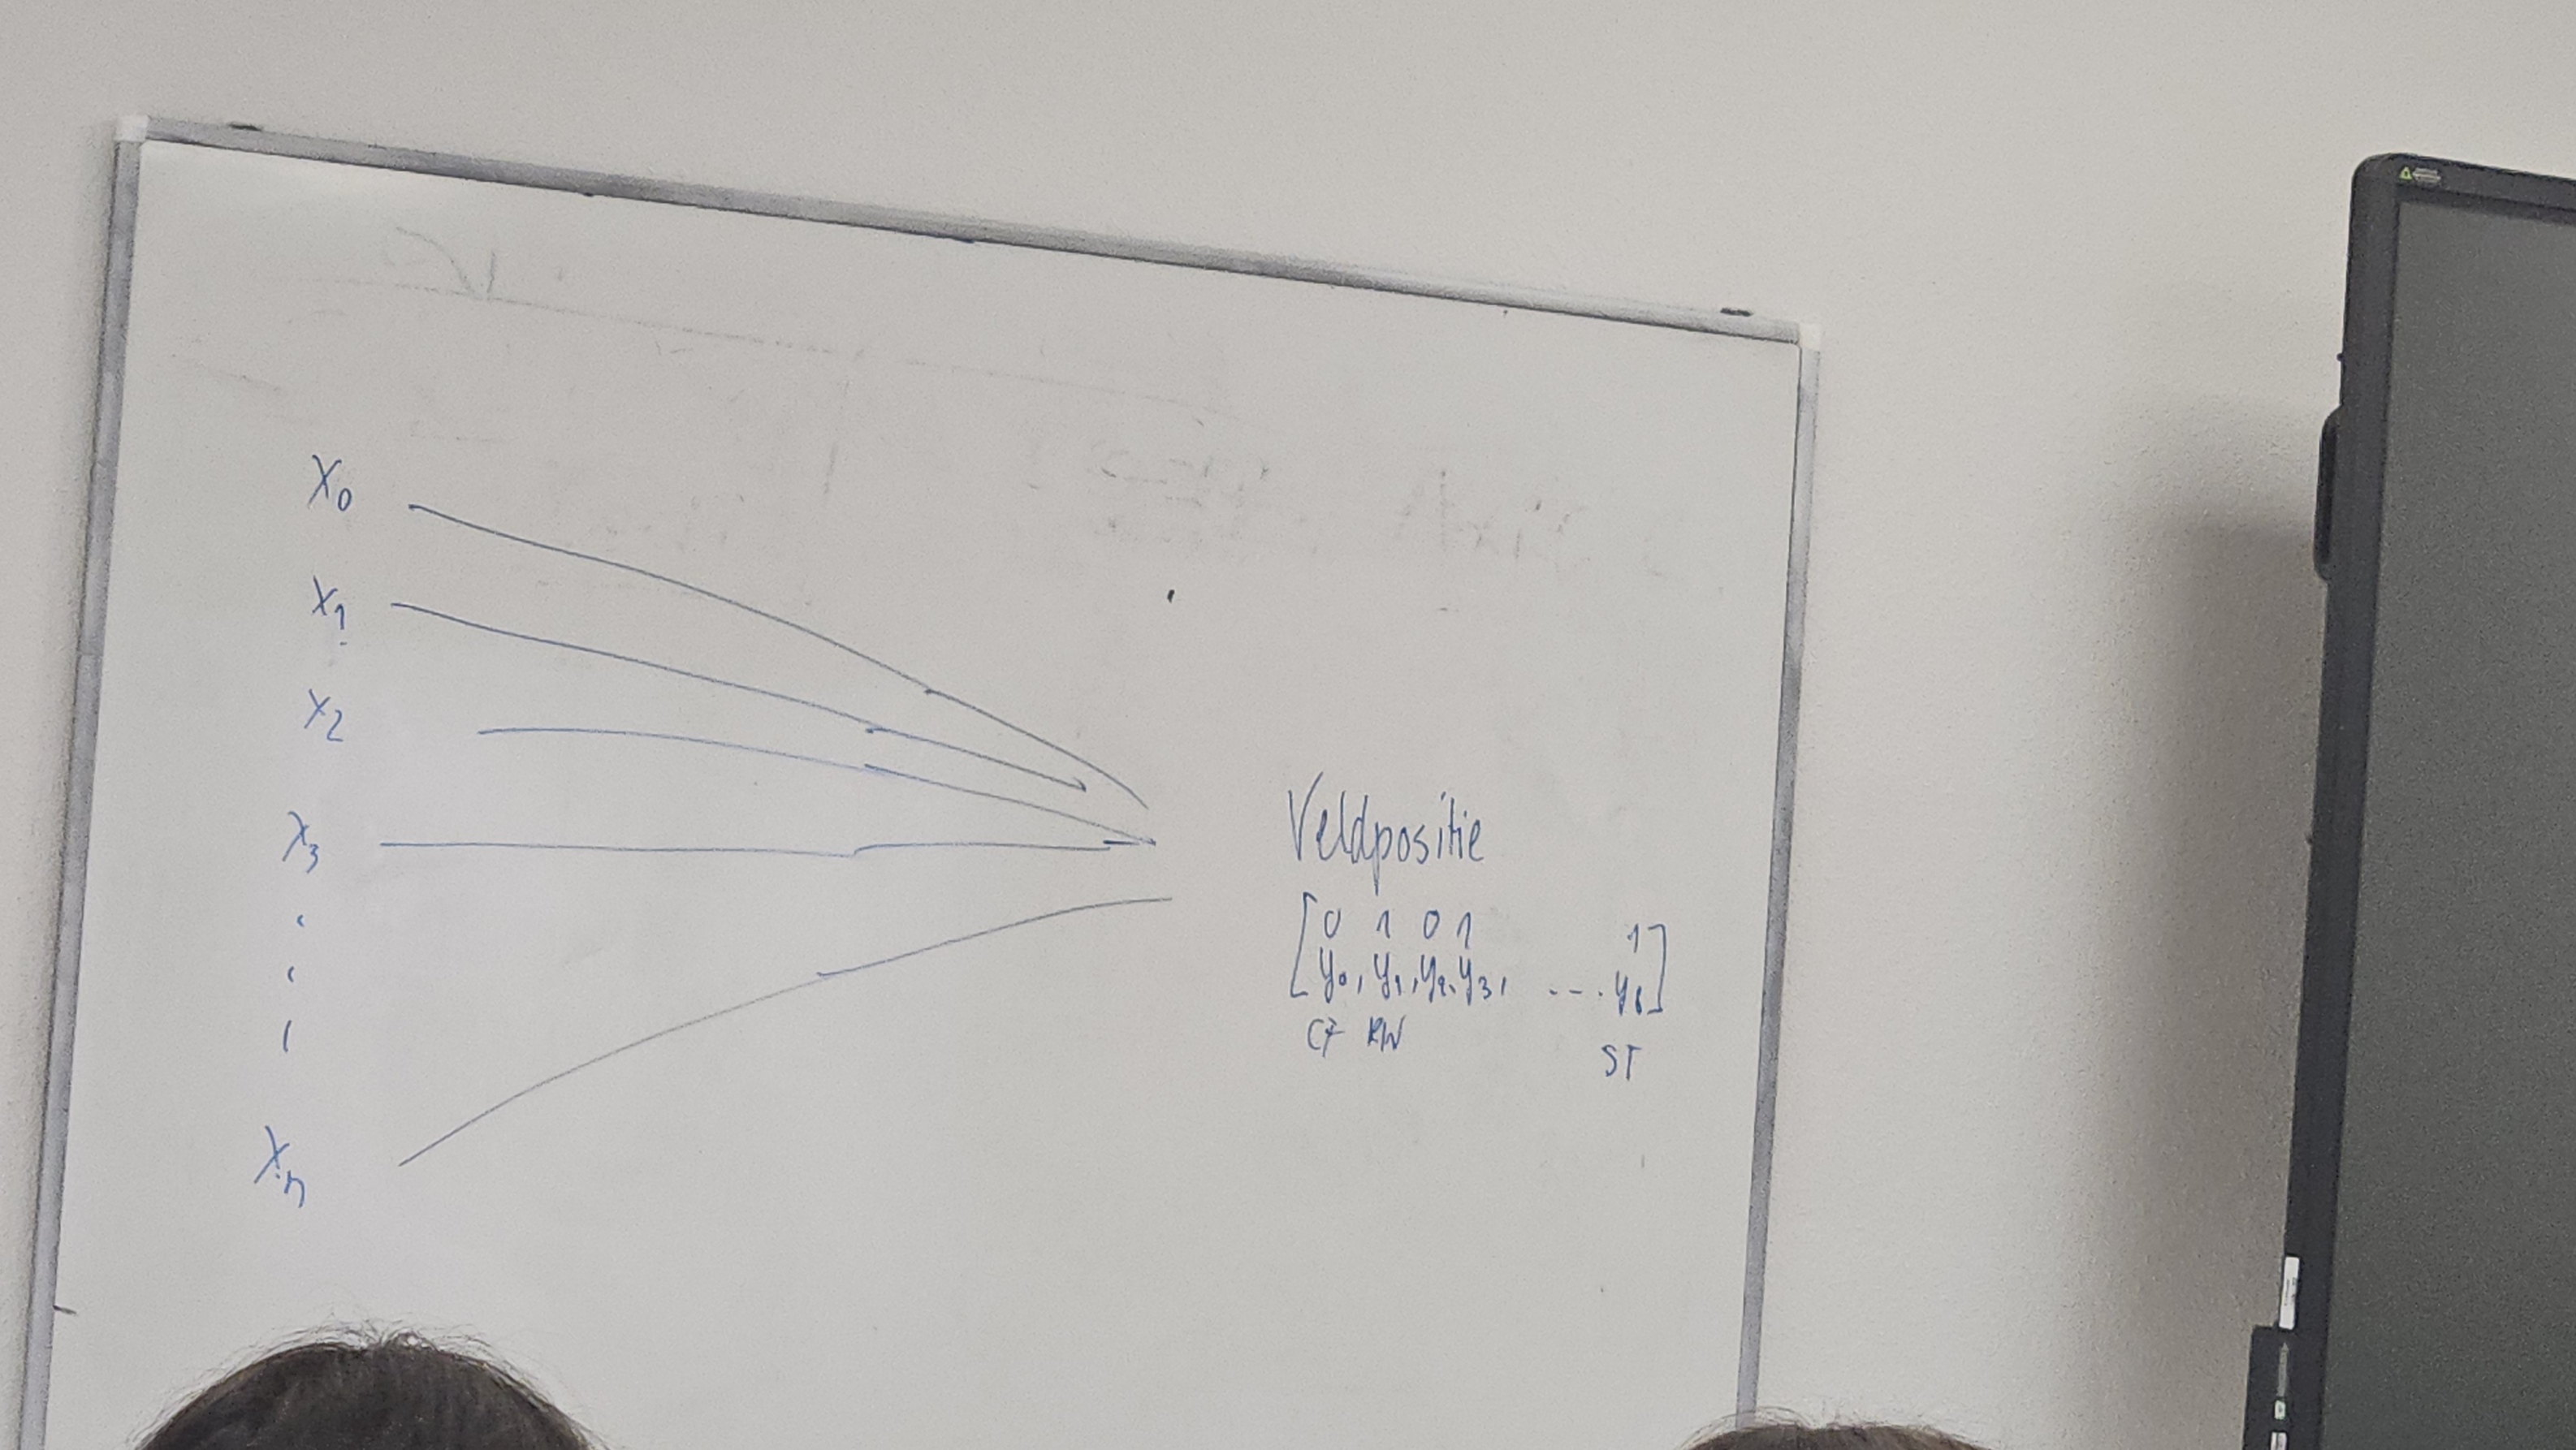 X0
X1
X2
X3
Xn
Veldpositie
[0 1 0 1 1]
y0, y1, y2, y3, ---. y8
CF RW
ST